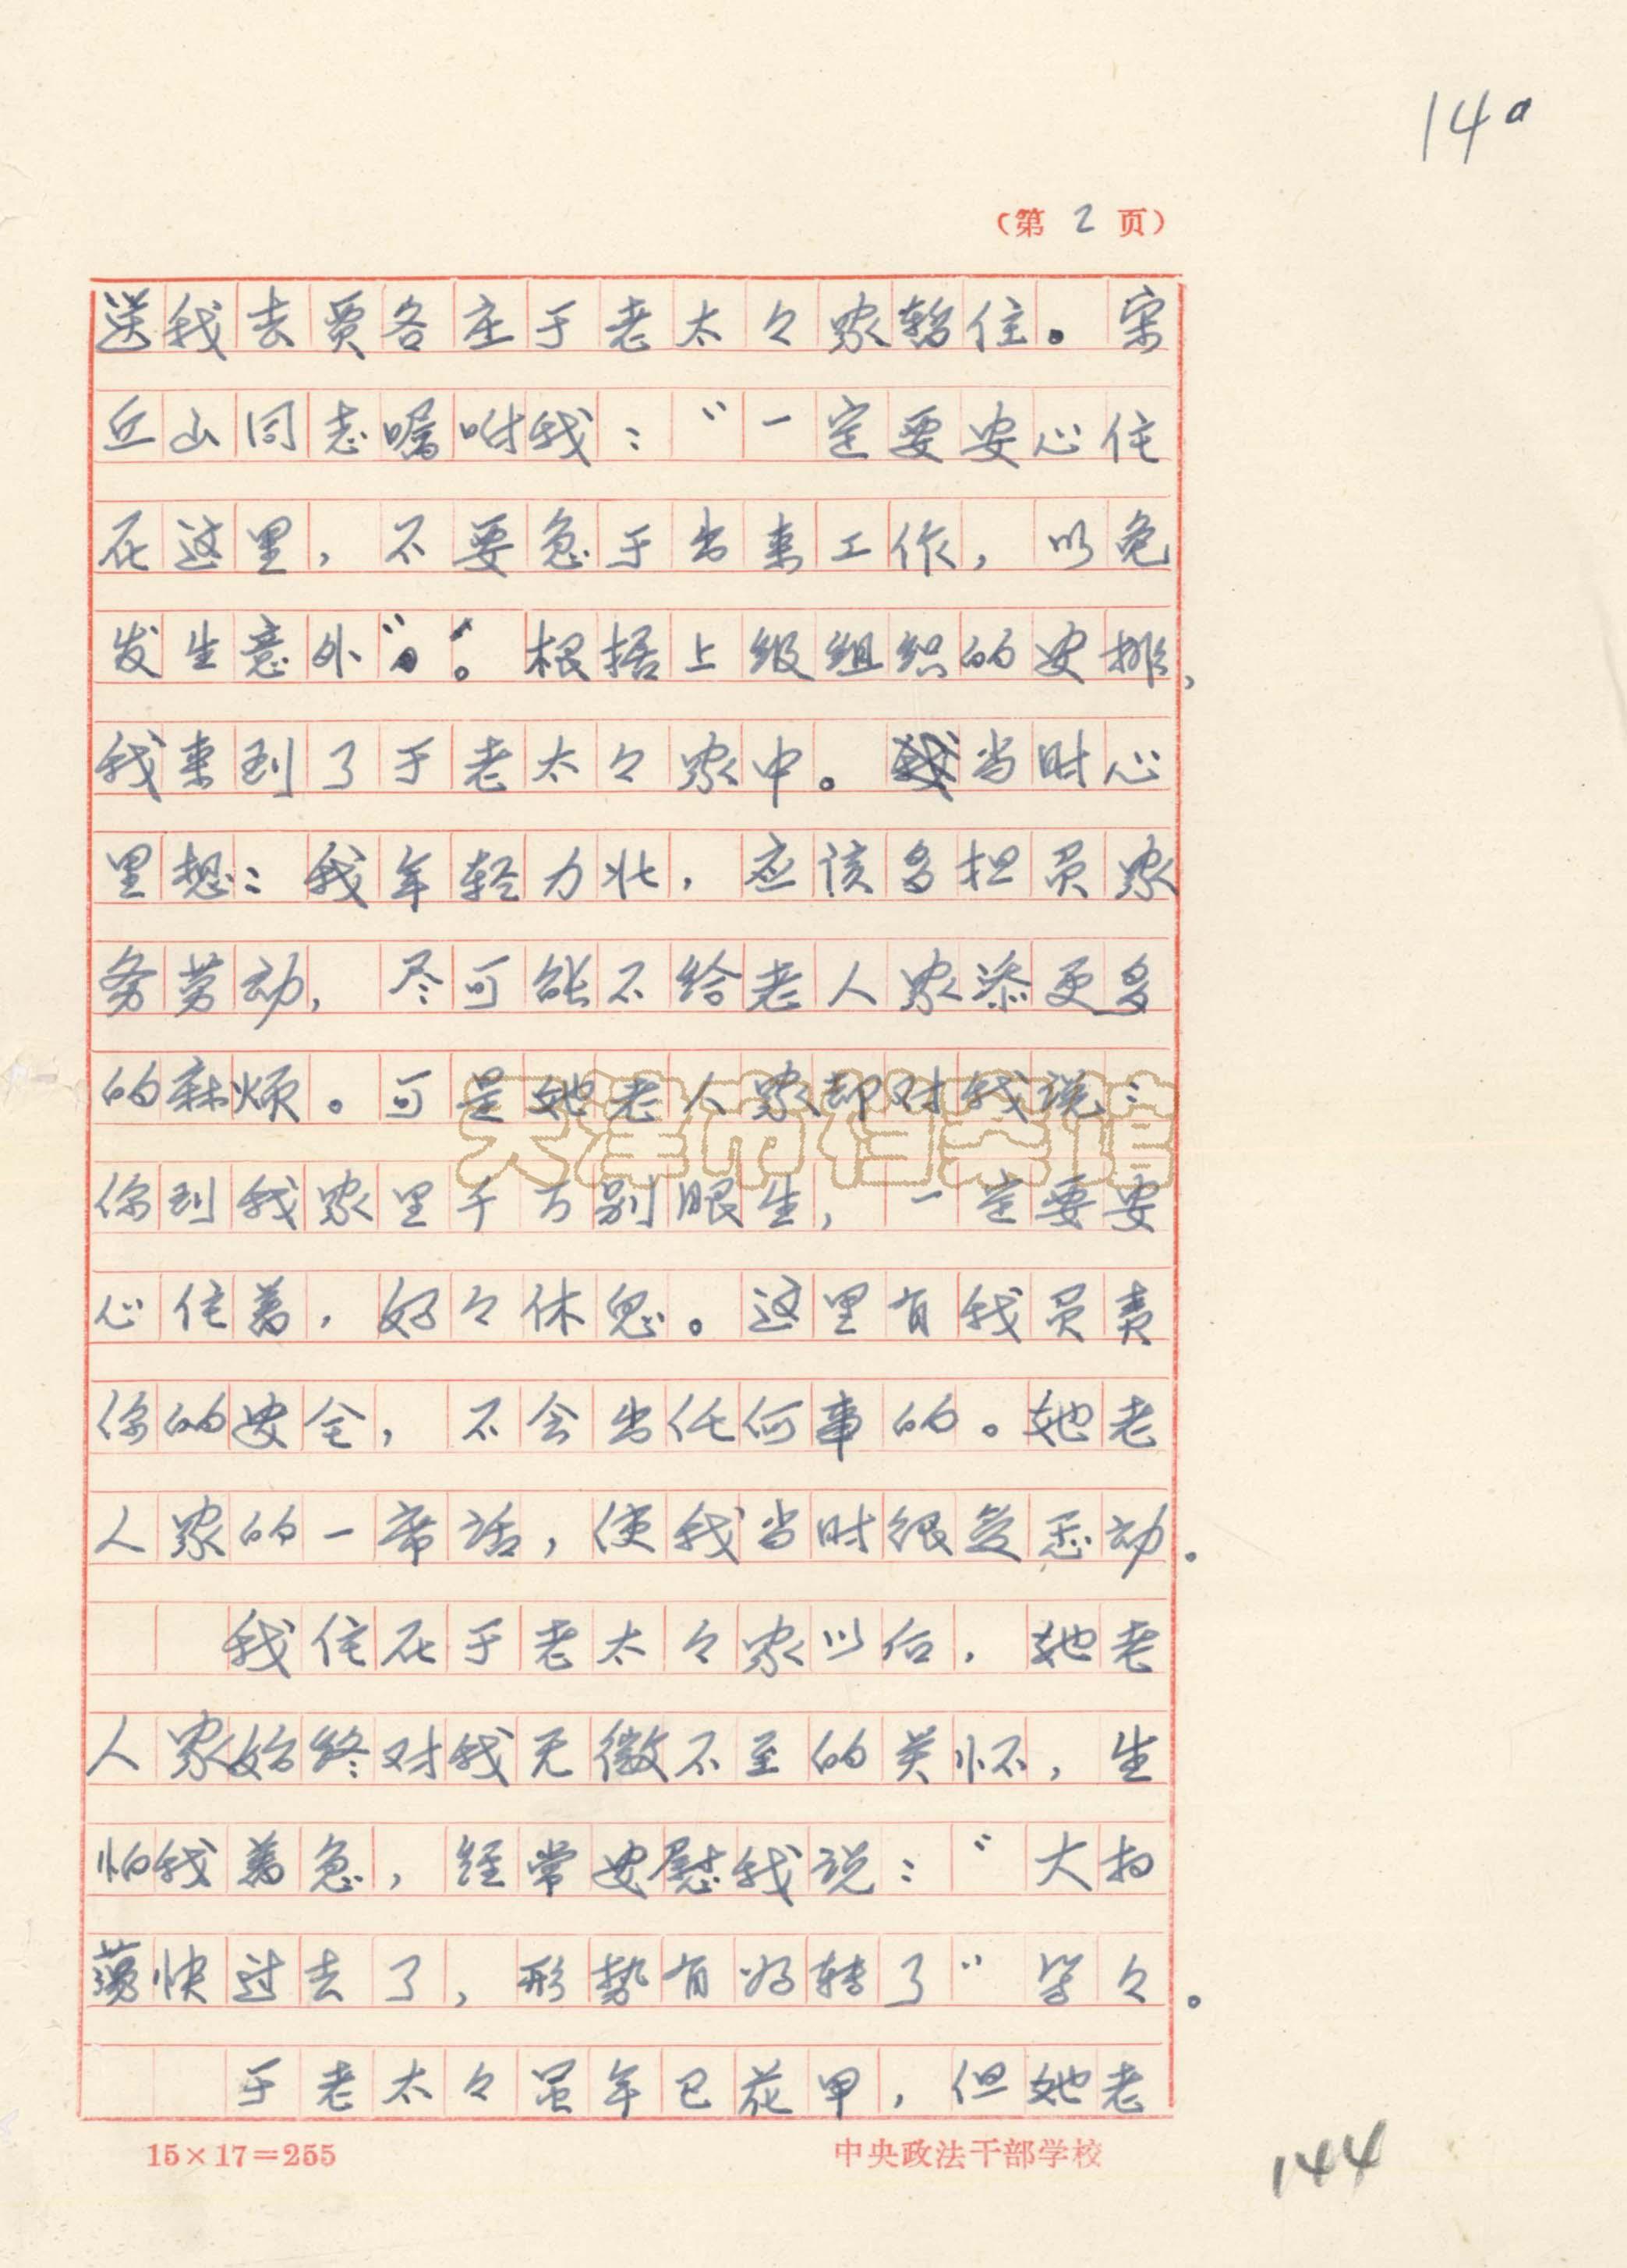 140
(第 2 页)
送我去贾各庄于老太々家暂住。宋
丘山同志嘱咐我：“一定要安心住
在这里，不要急于出来工作，以免
发生意外”。根据上级组织的安排，
我来到了于老太々家中。当时心
里想：我年轻力壮，应该多担负家
务劳动，尽可能不给老人家添更多
的麻烦。可是她老人家却对我说：
天津市档案馆
你到我家里千万别眼生，一定要安
心住着，好々休息。这里有我负责
你的安全，不会出任何事的。她老
人家的一席话，使我当时很受感动。
我住在于老太々家以后，她老
人家始终对我无微不至的关怀，生
怕我着急，经常安慰我说：“大扫
荡快过去了，形势有好转了”等々。
于老太々虽年已花甲，但她老
15×17=255
中央政法干部学校
144